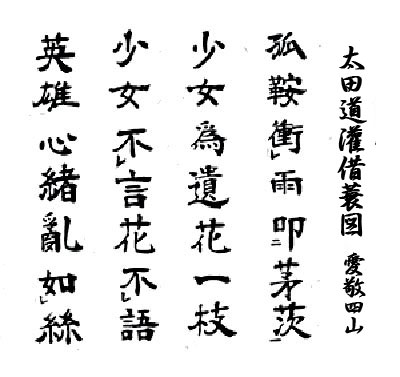 太田道灌借蓑図 愛敬四山
孤鞍衝レ雨叩二茅茨一
少女為遺花一枝
少女不レ言花不レ語
英雄心緒乱如レ絲